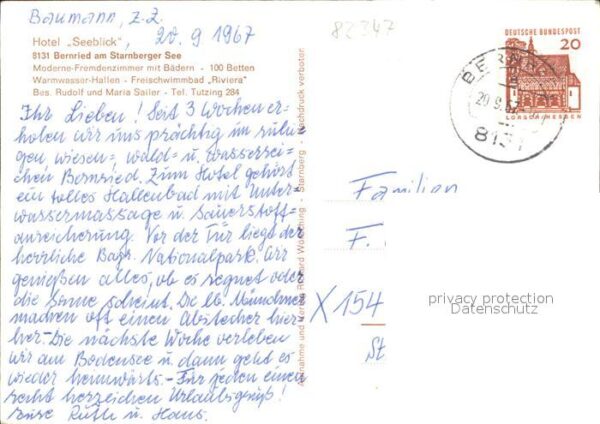 Baumann, z.Z. 20.9.1967
82347
Hotel „Seeblick",
8131 Bernried am Starnberger See
Moderne-Fremdenzimmer mit Bädern - 100 Betten
Warmwasser-Hallen - Freischwimmbad „Riviera"
Bes. Rudolf und Maria Sailer - Tel. Tutzing 284
Ihr Lieben! Seit 3 Wochen er=
holen wir uns prächtig im ruhi=
gen, wiesen=, wald= u. wasserrei=
chen Bernried. Zum Hotel gehört
ein tolles Hallenbad mit Unter=
wassermassage u. Sauerstoff=
anreicherung. Vor der Tür liegt der
herrliche Bayr. Nationalpark. Wir
genießen alles, ob es regnet oder
die Sonne scheint. Die lb. Münchner
machen oft einen Abstecher hier=
her. Die nächste Woche verleben
wir am Bodensee u. dann geht es
wieder heimwärts. - Für jeden einen
recht herzlichen Urlaubsgruß!
Eure Ruth u. Hans.
Aufnahme und Verlag Richard Wörsching - Starnberg - Nachdruck verboten
DEUTSCHE BUNDESPOST
20
LORSCH/HESSEN
20.9.67
8131
Familien
F.
X 154
St
privacy protection
Datenschutz